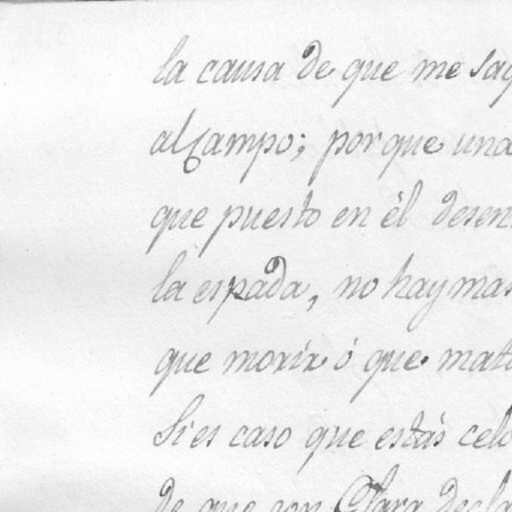 la causa de que me saq
al Campo; porque una
que puesto en él desen
la espada, no hay mas
que morir ó que mata
Si es caso que estás celo
de que con Clara decla